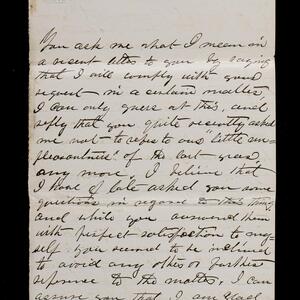 You ask me what I mean in
a recent letter to you by saying
that I will comply with your
request in a certain matter
I can only guess at this, and
reply that you quite recently asked
me not to refer to our "little un-
pleasantness" of the last year
any more". I believe that
I have of late asked you some
questions in regard to this thing,
and while you answered them
with perfect satisfaction to my-
self you seemed to be inclined
to avoid any other or further
reference to the matter, I can
assure you that I am